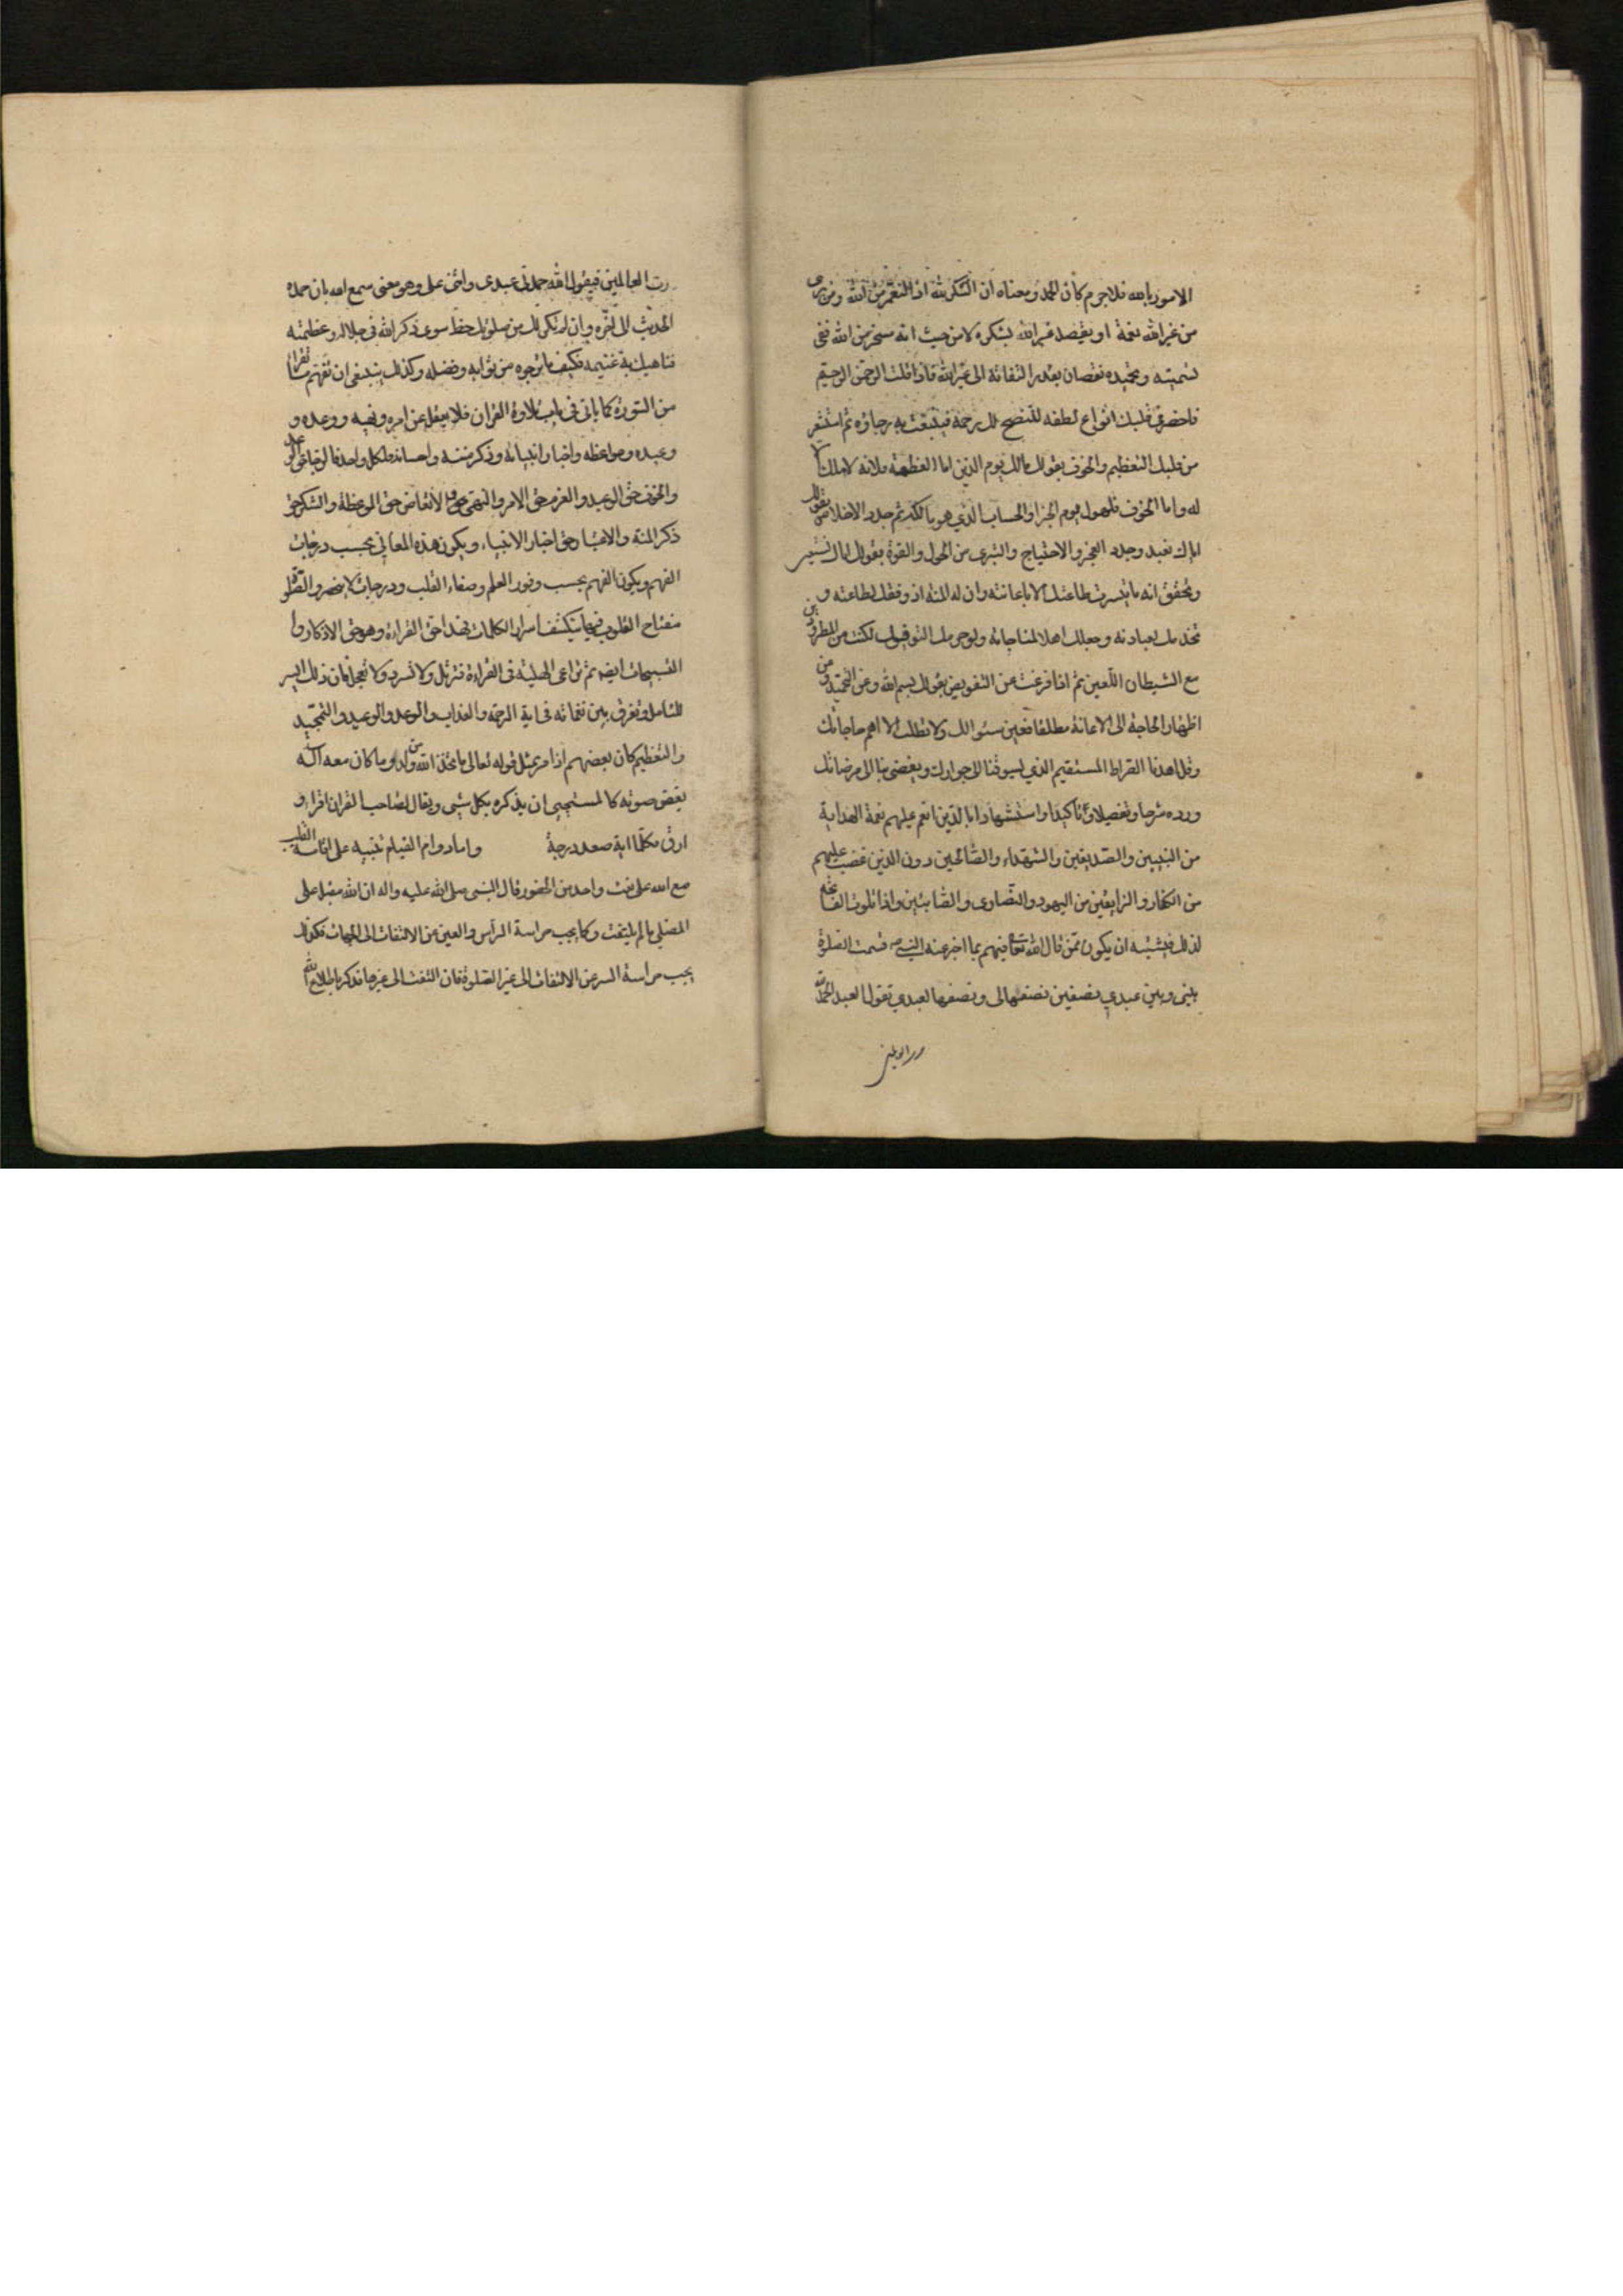 الامور بالله فلا جرم كان الحمد لله ومعناه ان الشكر لله اذ النعم من الله ومن يرى
من غير الله نعمة او يقصد غير الله بشكره لا من حيث انه مسخر من الله ففى
تسميته وتحميده نقصان بقدر التفاته الى غير الله فاذا قلت الرحمن الرحيم
فاحضر فى قلبك انواع لطفه لتتضح لك رحمته فينبعث به رجاؤه ثم استشعر
من قلبك التعظيم والخوف بقولك مالك يوم الدين اما العظمة فلانه لا ملك الا
له واما الخوف فلهول يوم الجزاء والحساب الذي هو مالكه ثم جدد الاخلاص بقولك
اياك نعبد وجدد العجز والاحتياج والتبرى من الحول والقوة بقولك اياك نستعين
وتحقق انه ما تيسرت طاعتك الا باعانته وان له المنة اذ وفقك لطاعته و
تخدمك لعبادته وجعلك اهلا لمناجاته ولو حرمك التوفيق لكنت من المطرودين
مع الشيطان اللعين ثم اذا فرغت من التفويض بقولك بسم الله وعن التحميد ومن
اظهار الحاجة الى الاعانة مطلقا فعين سئوالك ولا تطلب الا اهم حاجاتك
وقل اهدنا الصراط المستقيم الذي يسوقنا الى جوارك ويفضى بنا الى مرضاتك
ورده شرحا وتفصيلا وتأكيدا واستشهادا بالذين انعم عليهم نعمة الهداية
من النبيين والصديقين والشهداء والصالحين دون الذين غضب عليهم
من الكفار والزايغين من اليهود والنصارى والصابئين واذا تلوت الفاتحة
لذلك فيشبه ان يكون ممن قال الله تعا فيهم بما اخبر عنه النبي ص قسمت الصلوة
بينى وبين عبدي نصفين نصفها لى ونصفها لعبدي تقول العبد الحمد لله
رب العالمين
رب العالمين فيقول الله حمدنى عبدى واثنى على وهو معنى سمع الله لمن حمده
الحديث الى اخره وان لم تكن لك من صلوتك حظ سوى ذكر الله فى جلاله وعظمته
فناهيك به غنيمة فكيف ما ترجوه من ثوابه وفضله وكذلك ينبغى ان تفهم ما تقرا
من السورة كما ياتى فى باب تلاوة القران فلا يغفل عن امره ونهيه ووعده و
وعيده ومواعظه واخبار انبيائه وذكر مننه واحسانه فلكل واحد حق
والخوف حق الوعيد والعزم حق الامر والنهى والاتعاظ حق الموعظة والشكر حق
ذكر المنة والاعتبار حق اخبار الانبياء ويكون هذه المعانى بحسب درجات
الفهم ويكون الفهم بحسب وفور العلم وصفاء القلب ودرجات لا ينحصر والصلوة
مفتاح القلوب فيها ينكشف اسرار الكلمات فهذا حق القراءة وهو حق الاذكار وا
التسبيحات ايضا ثم تراعى الهيئة فى القراءة فترتل ولا تسرد ولا تعجل فان ذلك ايسر
للتامل وتفرق بين نغماته فى اية الرحمة والعذاب والوعد والوعيد والتمجيد
والتعظيم كان بعضهم اذا مر بمثل قوله تعالى ما اتخذ الله من ولد وما كان معه اله
يغض صوته كالمستحيى ان يذكره بكل شيى ويقال لصاحب القران اقراء و
ارق فكلما اية صعد درجة واما دوام القيام تنبيه على اقامة القلب
مع الله على نعت واحد من الحضور قال النبى صلى الله عليه واله ان الله مقبل على
المصلى ما لم يلتفت وكما يجب حراسة الرأس والعين من الالتفات الى الجهات فكذلك
يجب حراسة السر عن الالتفات الى غير الصلوة فان التفت الى غيرها فذكر باطلاع الله